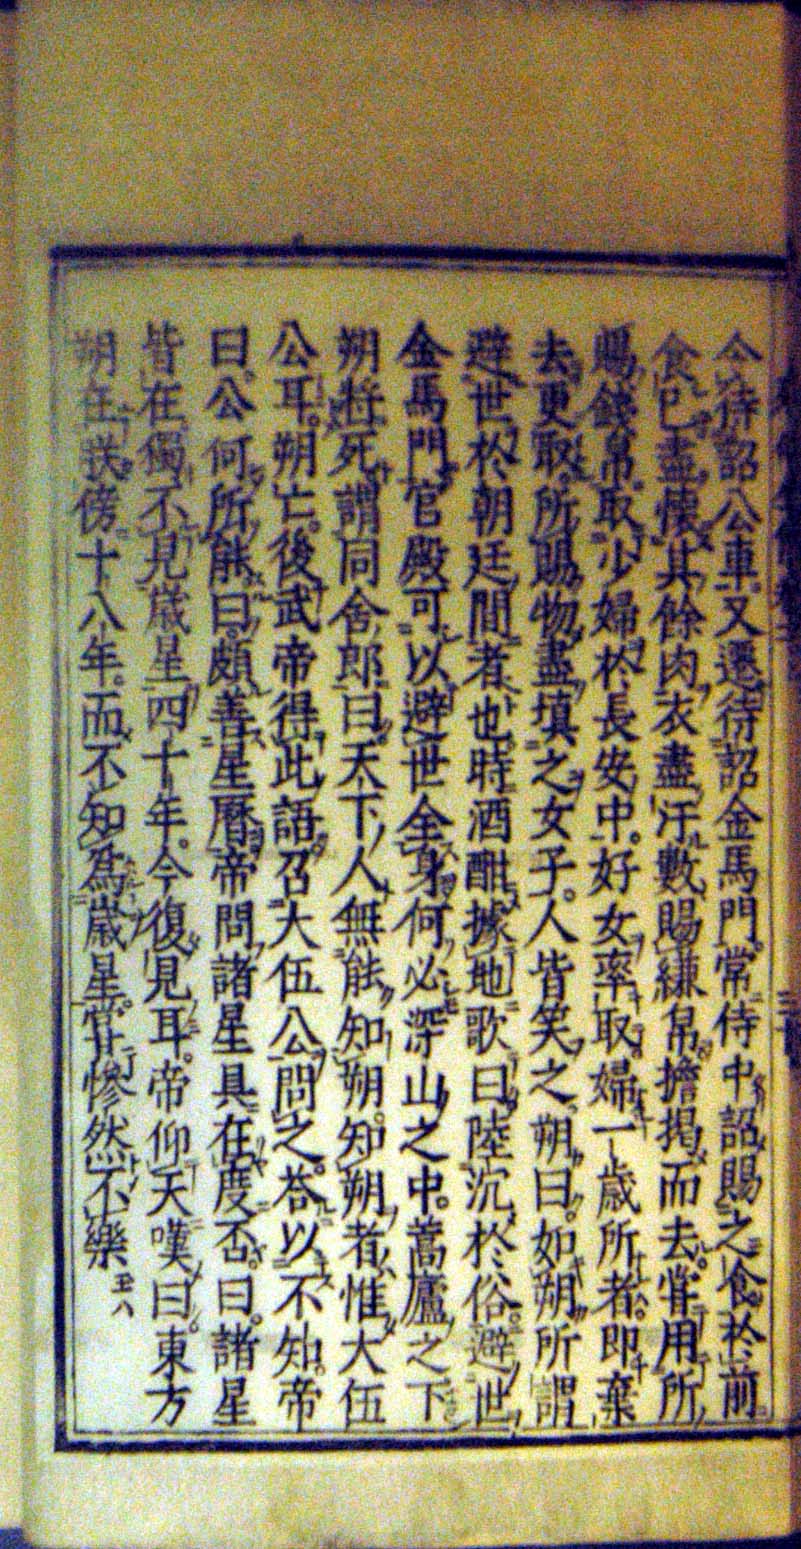 令待詔公車。又遷待詔金馬門。常侍中。詔賜之食於前
食已盡懷其餘肉衣盡汙數賜縑帛擔揭而去。嘗用所
賜錢帛。取少婦於長安中。好女率取婦一歲所者。即棄
去更取。所賜物盡填之女子。人皆笑之。朔曰。如朔所謂
避世於朝廷間者也。時酒酣據地歌曰。陸沉於俗。避世
金馬門。官殿可以避世全身。何必深山之中。蒿廬之下
朔將死。謂同舍郎曰。天下人無能知朔。知朔者惟大伍
公耳。朔亡。後武帝得此語。召大伍公問之。荅以不知。帝
曰。公何所能。曰。頗善星曆。帝問諸星具在度否。曰。諸星
皆在。獨不見歲星四十年。今復見耳。帝仰天嘆曰。東方
朔在朕傍十八年。而不知爲歲星。嘗慘然不樂